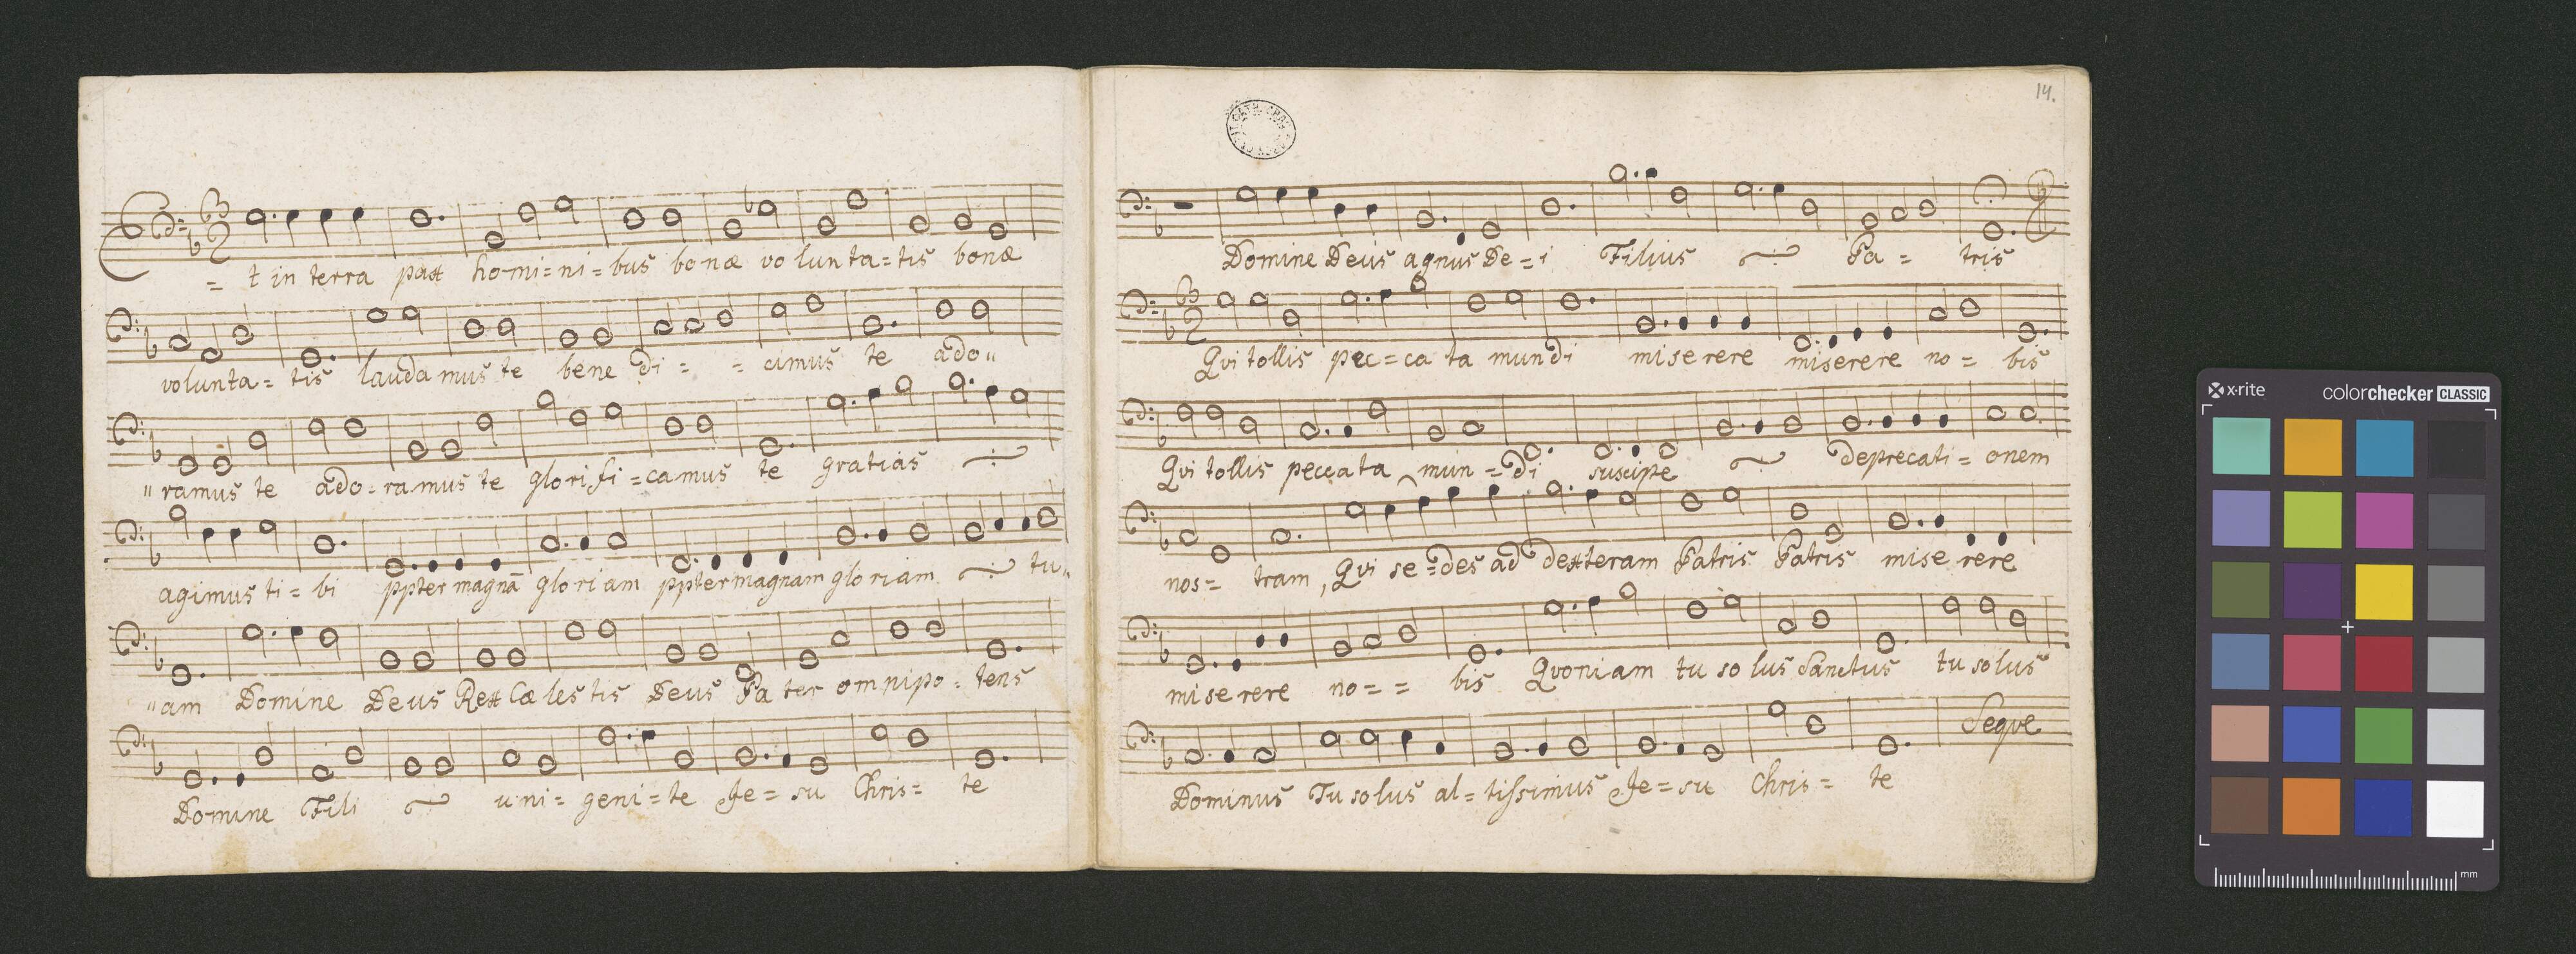 Et in terra pax homi=ni=bus bonæ voluntatis bonæ
volunta=tis laudamus te bene di= = cimus te ado"
"ramus te ado=ramus te glorifi=camus te gratias
agimus ti=bi ppter magnā gloriam ppter magnam gloriam tu"
"am Domine Deus Rex Cælestis Deus Pater omnipo=tens
Domine Fili uni=geni=te Je=su Chris=te
14.
Domine Deus agnus De=i Filius Pa= tris
Qvi tollis pec=cata mundi miserere miserere no= bis
Qvi tollis peccata mun=di suscipe deprecati=onem
nos= tram, Qvi se=des ad dexteram Patris Patris miserere
miserere no== bis Qvoniam tu solus Sanctus tu solus
Dominus Tu solus al=tissimus Je=su Chris= te Seqve
x·rite colorchecker CLASSIC
mm